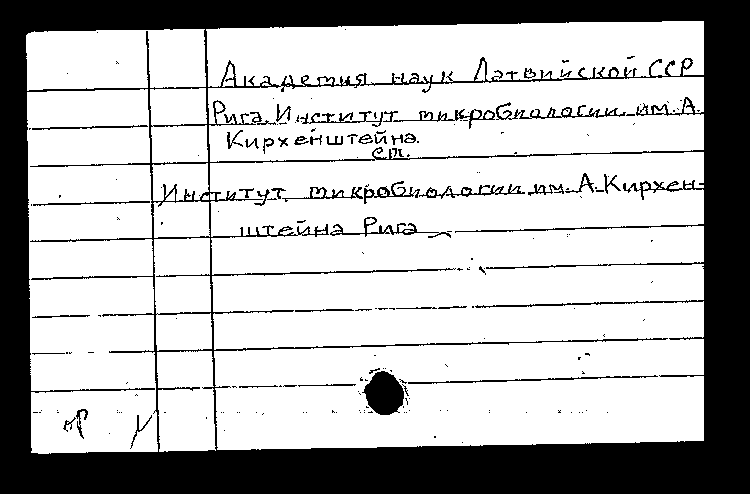 Академия наук Латвийской ССР
Рига. Институт микробиологии им. А.
Кирхенштейна.
см.
Институт микробиологии им. А. Кирхен-
штейна Рига